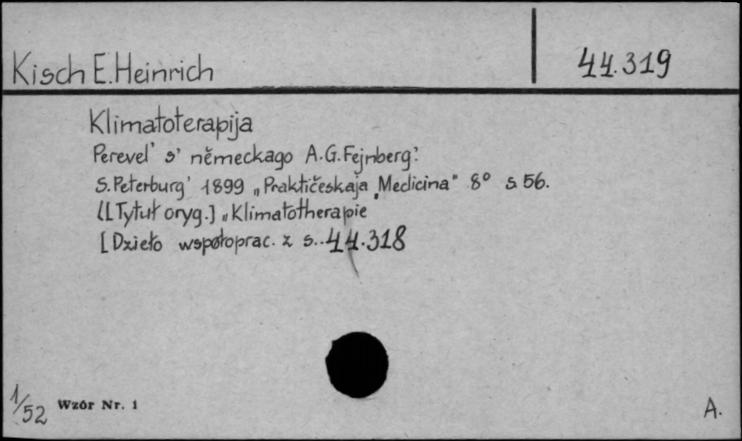 Kisch E. Heinrich
44.319
Klimatoterapija
Perevel' s' německago A.G. Fejnberg:
S. Peterburg' 1899 „Praktičeskaja Medicina" 8° s. 56.
[[Tytuł oryg.] „Klimatotherapie
[Dzieło współoprac. z s.. 44.318
1/52 Wzór Nr. 1
A.